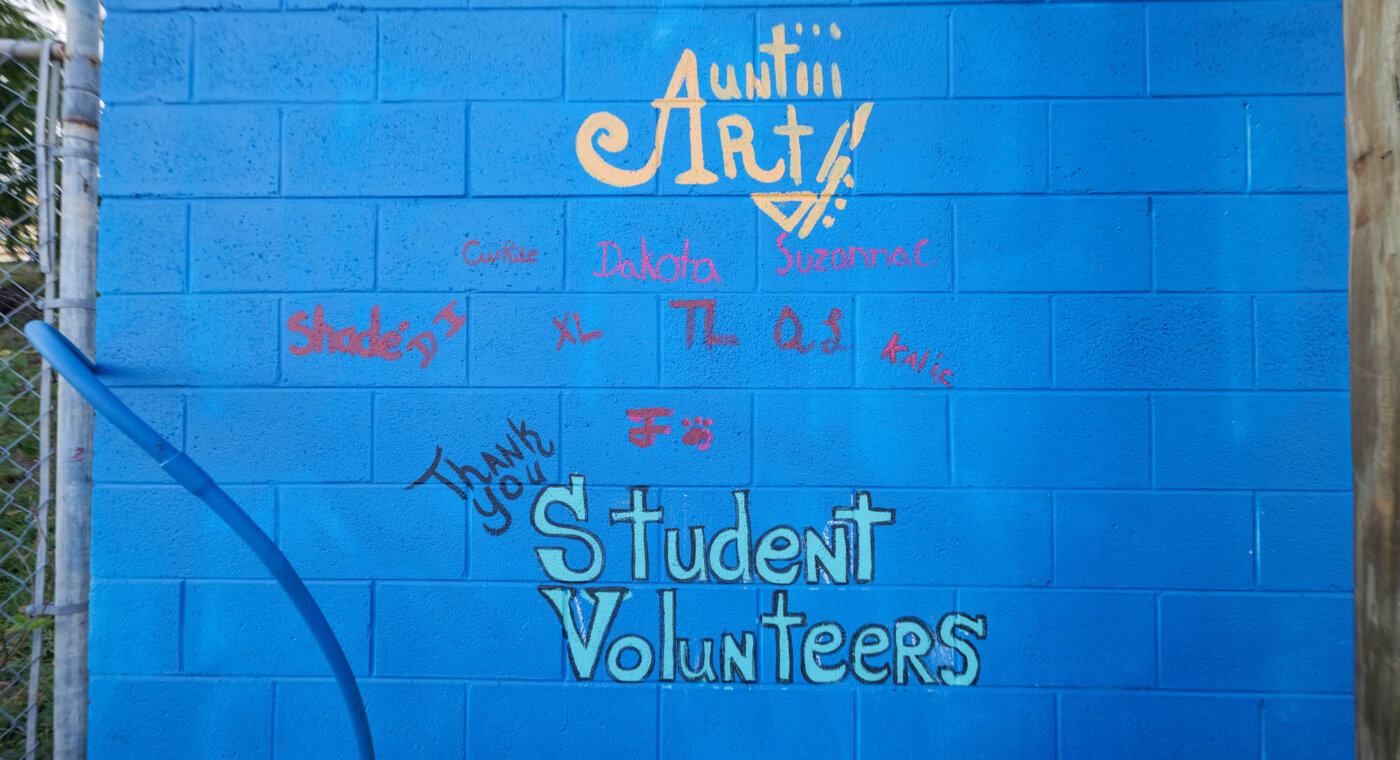 Auntiii
Art
Dakota Suzanna C.
Shadé DH XL TL Q.S Kalic
Thank
you
Student
Volunteers